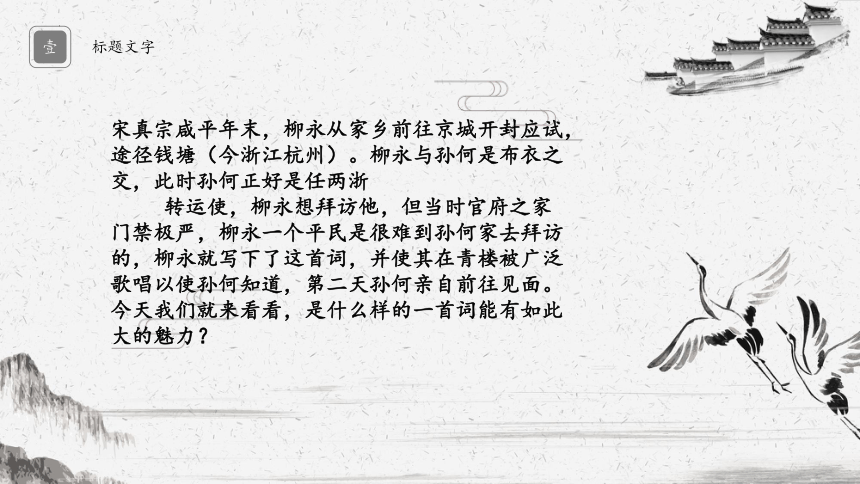 壹
标题文字
宋真宗咸平年末，柳永从家乡前往京城开封应试，
途径钱塘（今浙江杭州）。柳永与孙何是布衣之
交，此时孙何正好是任两浙
转运使，柳永想拜访他，但当时官府之家
门禁极严，柳永一个平民是很难到孙何家去拜访
的，柳永就写下了这首词，并使其在青楼被广泛
歌唱以使孙何知道，第二天孙何亲自前往见面。
今天我们就来看看，是什么样的一首词能有如此
大的魅力？